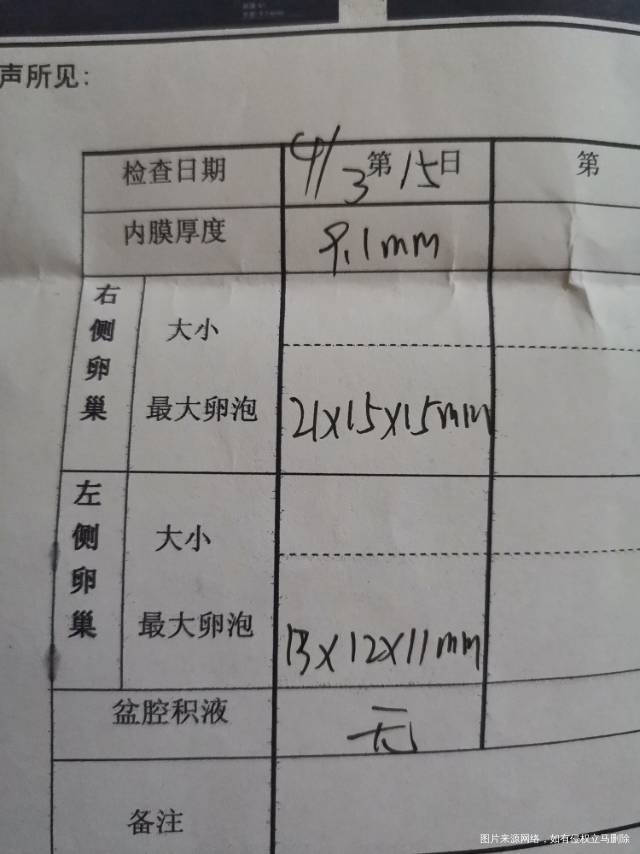 声所见：
检查日期 4/3 第15日 第
内膜厚度 9.1mm
右侧卵巢 大小
最大卵泡 21×15×15mm
左侧卵巢 大小
最大卵泡 13×12×11mm
盆腔积液 无
备注
图片来源网络，如有侵权立马删除